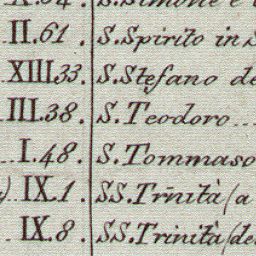 X.34. S. Simone e
II.61. S. Spirito in S
XIII.33. S. Stefano de
III.38. S. Teodoro
I.48. S. Tommaso
) IX.1. SS. Trinità (a
IX.8. SS. Trinità (de